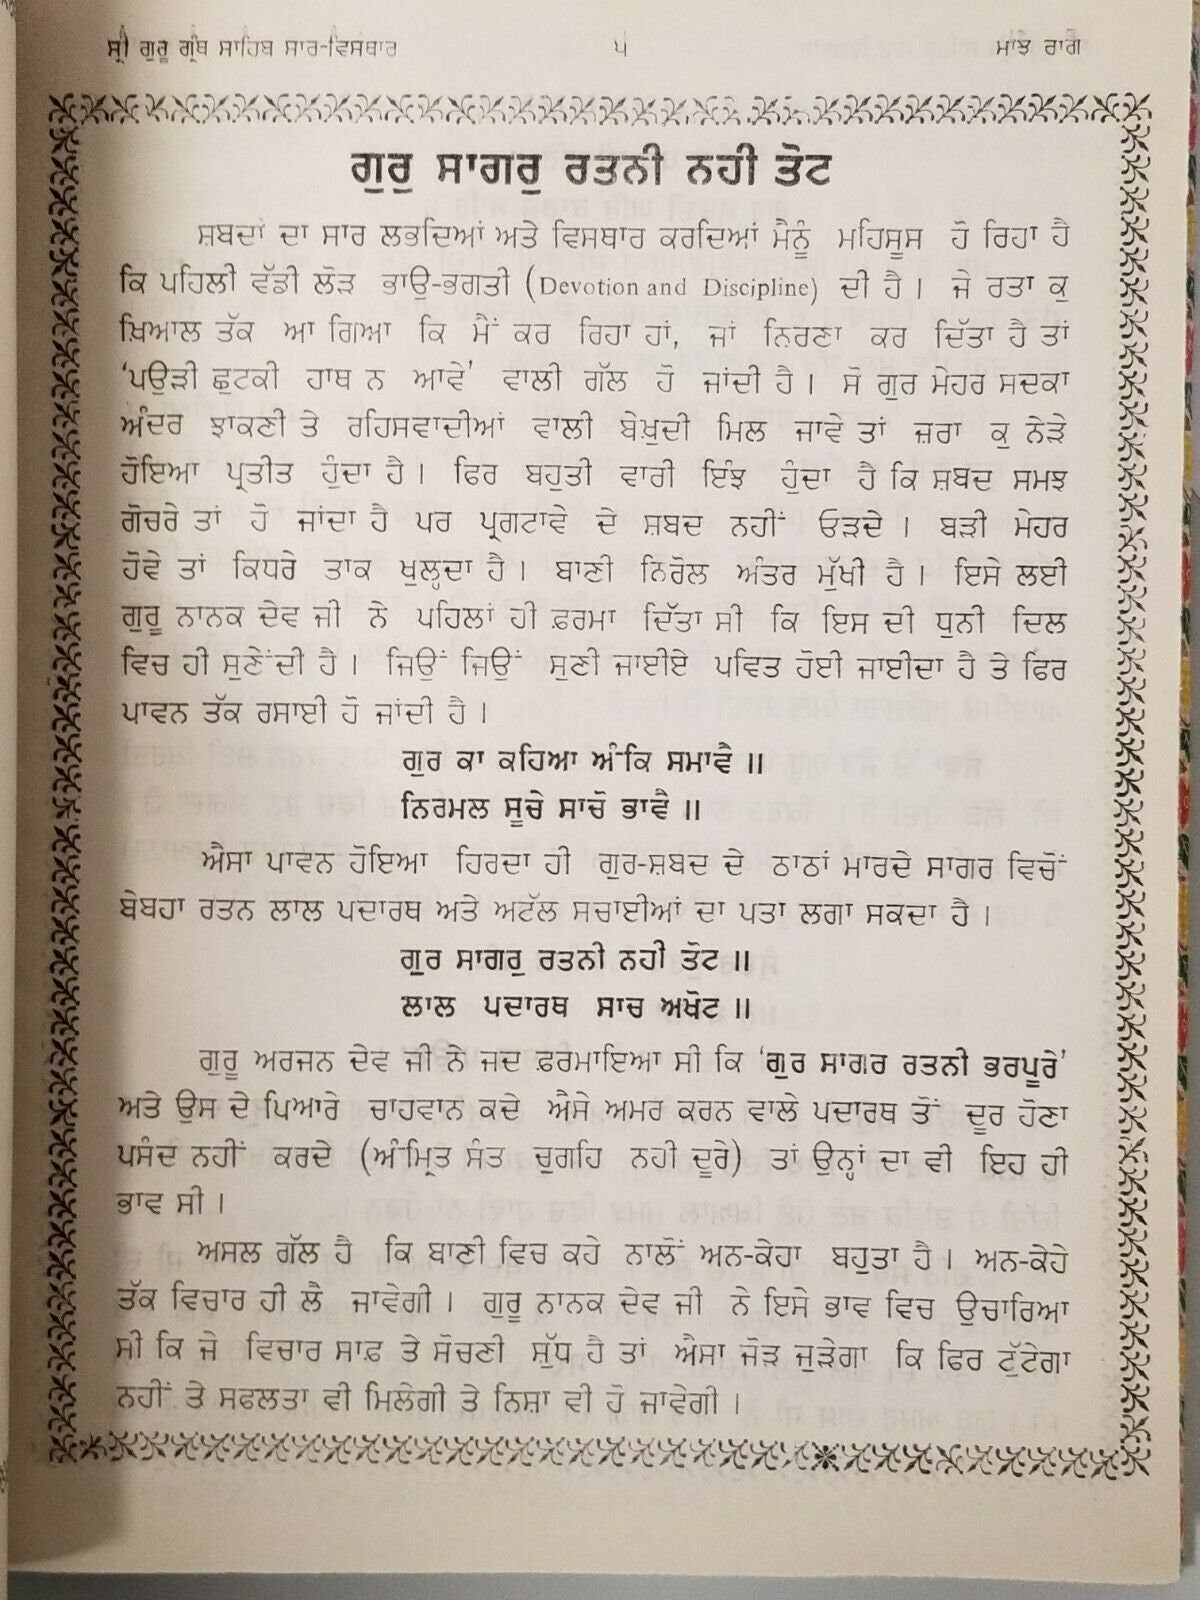 ਸ੍ਰੀ ਗੁਰੂ ਗ੍ਰੰਥ ਸਾਹਿਬ ਸਾਰ-ਵਿਸਥਾਰ ੫ ਮਾਝ ਰਾਗ
ਗੁਰੁ ਸਾਗਰੁ ਰਤਨੀ ਨਹੀ ਤੋਟ
ਸ਼ਬਦਾਂ ਦਾ ਸਾਰ ਲਭਦਿਆਂ ਅਤੇ ਵਿਸਥਾਰ ਕਰਦਿਆਂ ਮੈਨੂੰ ਮਹਿਸੂਸ ਹੋ ਰਿਹਾ ਹੈ
ਕਿ ਪਹਿਲੀ ਵੱਡੀ ਲੋੜ ਭਾਉ-ਭਗਤੀ (Devotion and Discipline) ਦੀ ਹੈ। ਜੇ ਰਤਾ ਕੁ
ਖ਼ਿਆਲ ਤੱਕ ਆ ਗਿਆ ਕਿ ਮੈਂ ਕਰ ਰਿਹਾ ਹਾਂ, ਜਾਂ ਨਿਰਣਾ ਕਰ ਦਿੱਤਾ ਹੈ ਤਾਂ
‘ਪਉੜੀ ਛੁਟਕੀ ਹਾਥ ਨ ਆਵੇ’ ਵਾਲੀ ਗੱਲ ਹੋ ਜਾਂਦੀ ਹੈ। ਸੋ ਗੁਰ ਮੇਹਰ ਸਦਕਾ
ਅੰਦਰ ਝਾਕਣੀ ਤੇ ਰਹਿਸਵਾਦੀਆਂ ਵਾਲੀ ਬੇਖ਼ੁਦੀ ਮਿਲ ਜਾਵੇ ਤਾਂ ਜ਼ਰਾ ਕੁ ਨੇੜੇ
ਹੋਇਆ ਪ੍ਰਤੀਤ ਹੁੰਦਾ ਹੈ। ਫਿਰ ਬਹੁਤੀ ਵਾਰੀ ਇੰਝ ਹੁੰਦਾ ਹੈ ਕਿ ਸ਼ਬਦ ਸਮਝ
ਗੋਚਰੇ ਤਾਂ ਹੋ ਜਾਂਦਾ ਹੈ ਪਰ ਪ੍ਰਗਟਾਵੇ ਦੇ ਸ਼ਬਦ ਨਹੀਂ ਔੜਦੇ। ਬੜੀ ਮੇਹਰ
ਹੋਵੇ ਤਾਂ ਕਿਧਰੇ ਤਾਕ ਖੁਲ੍ਹਦਾ ਹੈ। ਬਾਣੀ ਨਿਰੋਲ ਅੰਤਰ ਮੁੱਖੀ ਹੈ। ਇਸੇ ਲਈ
ਗੁਰੂ ਨਾਨਕ ਦੇਵ ਜੀ ਨੇ ਪਹਿਲਾਂ ਹੀ ਫ਼ਰਮਾ ਦਿੱਤਾ ਸੀ ਕਿ ਇਸ ਦੀ ਧੁਨੀ ਦਿਲ
ਵਿਚ ਹੀ ਸੁਣੇਂਦੀ ਹੈ। ਜਿਉਂ ਜਿਉਂ ਸੁਣੀ ਜਾਈਏ ਪਵਿਤ ਹੋਈ ਜਾਈਦਾ ਹੈ ਤੇ ਫਿਰ
ਪਾਵਨ ਤੱਕ ਰਸਾਈ ਹੋ ਜਾਂਦੀ ਹੈ।
ਗੁਰ ਕਾ ਕਹਿਆ ਅੰਕਿ ਸਮਾਵੈ॥
ਨਿਰਮਲ ਸੂਚੇ ਸਾਚੋ ਭਾਵੈ॥
ਐਸਾ ਪਾਵਨ ਹੋਇਆ ਹਿਰਦਾ ਹੀ ਗੁਰ-ਸ਼ਬਦ ਦੇ ਠਾਠਾਂ ਮਾਰਦੇ ਸਾਗਰ ਵਿਚੋਂ
ਬੇਬਹਾ ਰਤਨ ਲਾਲ ਪਦਾਰਥ ਅਤੇ ਅਟੱਲ ਸਚਾਈਆਂ ਦਾ ਪਤਾ ਲਗਾ ਸਕਦਾ ਹੈ।
ਗੁਰ ਸਾਗਰੁ ਰਤਨੀ ਨਹੀ ਤੋਟ॥
ਲਾਲ ਪਦਾਰਥ ਸਾਚ ਅਖੋਟ॥
ਗੁਰੂ ਅਰਜਨ ਦੇਵ ਜੀ ਨੇ ਜਦ ਫ਼ਰਮਾਇਆ ਸੀ ਕਿ ‘ਗੁਰ ਸਾਗਰ ਰਤਨੀ ਭਰਪੂਰੇ’
ਅਤੇ ਉਸ ਦੇ ਪਿਆਰੇ ਚਾਹਵਾਨ ਕਦੇ ਐਸੇ ਅਮਰ ਕਰਨ ਵਾਲੇ ਪਦਾਰਥ ਤੋਂ ਦੂਰ ਹੋਣਾ
ਪਸੰਦ ਨਹੀਂ ਕਰਦੇ (ਅੰਮ੍ਰਿਤ ਸੰਤ ਚੁਗਹਿ ਨਹੀ ਦੂਰੇ) ਤਾਂ ਉਨ੍ਹਾਂ ਦਾ ਵੀ ਇਹ ਹੀ
ਭਾਵ ਸੀ।
ਅਸਲ ਗੱਲ ਹੈ ਕਿ ਬਾਣੀ ਵਿਚ ਕਹੇ ਨਾਲੋਂ ਅਨ-ਕੇਹਾ ਬਹੁਤਾ ਹੈ। ਅਨ-ਕੇਹੇ
ਤੱਕ ਵਿਚਾਰ ਹੀ ਲੈ ਜਾਵੇਗੀ। ਗੁਰੂ ਨਾਨਕ ਦੇਵ ਜੀ ਨੇ ਇਸੇ ਭਾਵ ਵਿਚ ਉਚਾਰਿਆ
ਸੀ ਕਿ ਜੇ ਵਿਚਾਰ ਸਾਫ਼ ਤੇ ਸੋਚਣੀ ਸ਼ੁੱਧ ਹੈ ਤਾਂ ਐਸਾ ਜੋੜ ਜੁੜੇਗਾ ਕਿ ਫਿਰ ਟੁੱਟੇਗਾ
ਨਹੀਂ ਤੇ ਸਫਲਤਾ ਵੀ ਮਿਲੇਗੀ ਤੇ ਨਿਸ਼ਾ ਵੀ ਹੋ ਜਾਵੇਗੀ।